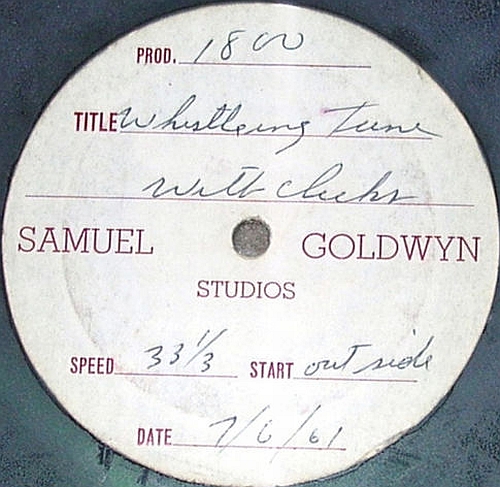 PROD. 1800
TITLE Whistleing Tune
with clicks
SAMUEL GOLDWYN
STUDIOS
SPEED 33 1/3 START outside
DATE 7/6/61